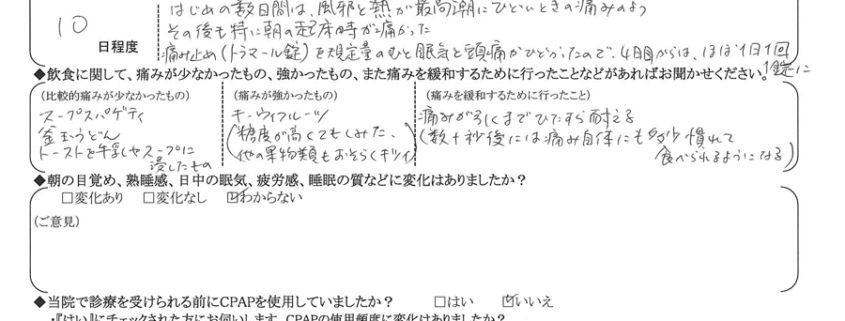 10
日程度
はじめの数日間は、風邪と熱が最高潮にひどいときの痛みのよう
その後も特に朝の起床時が痛かった
痛み止め(トラマール錠)を規定量のむと眠気と頭痛がひどかったので、4日目からは、ほぼ1日1回
1錠に
◆飲食に関して、痛みが少なかったもの、強かったもの、また痛みを緩和するために行ったことなどがあればお聞かせください。
(比較的痛みが少なかったもの)
スープスパゲティ
釜玉うどん
トーストを牛乳やスープに
浸したもの
(痛みが強かったもの)
キーウィフルーツ
(糖度が高くてもしみた、
他の果物類もおそらくキツイ)
(痛みを緩和するために行ったこと)
痛みがひくまでひたすら耐える
(数十秒後には痛み自体にも多少慣れて
食べられるようになる)
◆朝の目覚め、熟睡感、日中の眠気、疲労感、睡眠の質などに変化はありましたか?
□変化あり □変化なし ☑わからない
(ご意見)
◆当院で診療を受けられる前にCPAPを使用していましたか? □はい ☑いいえ
・『はい』にチェックされた方にお伺いします。CPAPの使用頻度に変化はありましたか?